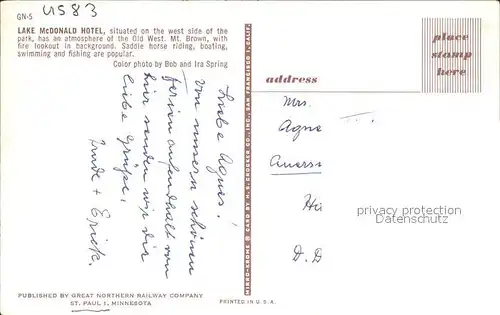 US 83
GN-5
LAKE McDONALD HOTEL, situated on the west side of the
park, has an atmosphere of the Old West. Mt. Brown, with
fire lookout in background. Saddle horse riding, boating,
swimming and fishing are popular.
Color photo by Bob and Ira Spring
Liebe Agnes!
Von unserm schönen
Ferienaufenthalt von
hier senden wir dir
liebe Grüße,
Trude + Erich.
MIRRO-KROME ® CARD BY H. S. CROCKER CO., INC., SAN FRANCISCO 1, CALIF.
place
stamp
here
address
Mrs.
Agne
D. D
privacy protection
Datenschutz
PUBLISHED BY GREAT NORTHERN RAILWAY COMPANY
ST. PAUL 1, MINNESOTA
PRINTED IN U.S.A.